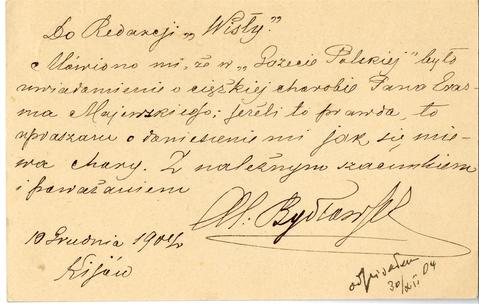 Do Redakcji „Wisły."
Mówiono mi, że w „Gazecie Polskiej" było
uwiadomienie o ciężkiej chorobie Pana Eraz-
ma Majewskiego; jeżeli to prawda, to
upraszam o doniesienie mi jak się mie-
wa chory. Z należnym szacunkiem
i poważaniem
Al.
10 Grudnia 1904
Kijów
odpisałem
30/XII 04